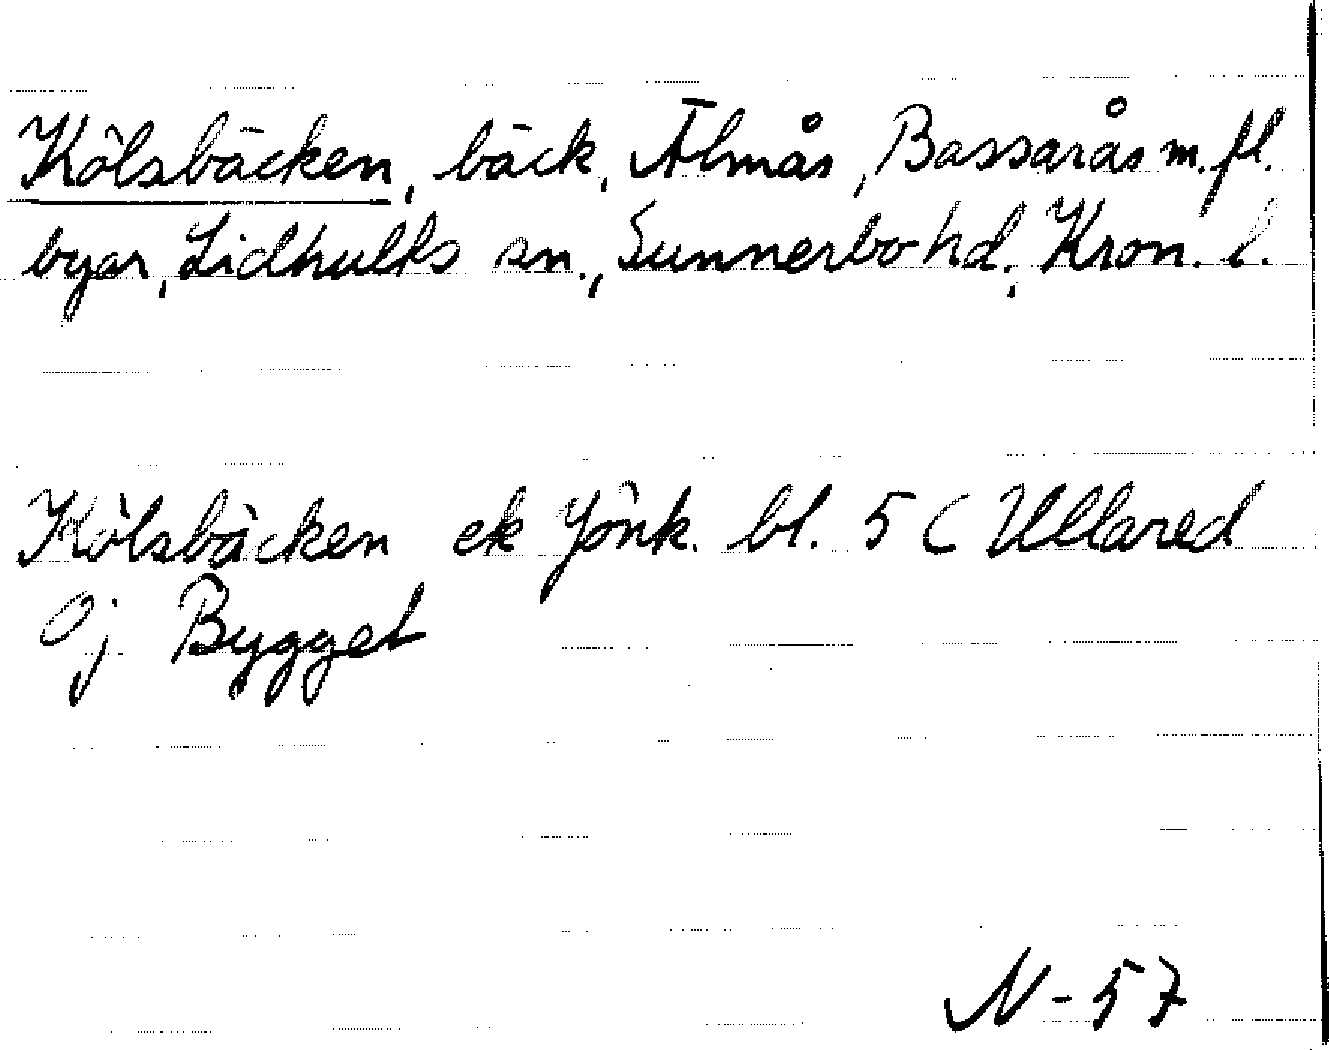 Kölsbäcken, bäck, Älmås, Bassarås m.fl.
byar, Lidhults sn., Sunnerbo hd, Kron. l.
Kölsbäcken ek Jönk. bl. 5 C Ullared
Öj Bygget
N-57